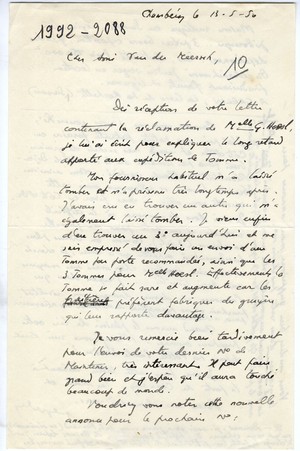 Chambéry le 13-5-50
1992-2088
Cher Ami Van der Keersch,
10
Dès réception de votre lettre
contenant la réclamation de Melle G. Hoesl,
je lui ai écrit pour expliquer le long retard
apporté aux expéditions de Tomme.
Mon fournisseur habituel m'a laissé
tomber et m'a prévenu très longtemps après.
J'avais cru en trouver un autre qui m'a
également laissé tomber. Je viens enfin
d'en trouver un 3e aujourd'hui et me
suis empressé de vous faire un envoi d'une
Tomme par poste recommandée, ainsi que les
3 Tommes pour Melle Hoesl. Effectivement la
Tomme se fait rare et augmente car les
préfèrent fabriquer du gruyère
qui leur rapporte davantage.
Je vous remercie bien tardivement
pour l'envoi de votre dernier No de
très intéressant. Il peut faire
grand bien et j'espère qu'il aura touché
beaucoup de monde.
Voudriez vous noter cette nouvelle
annonce pour le prochain No.